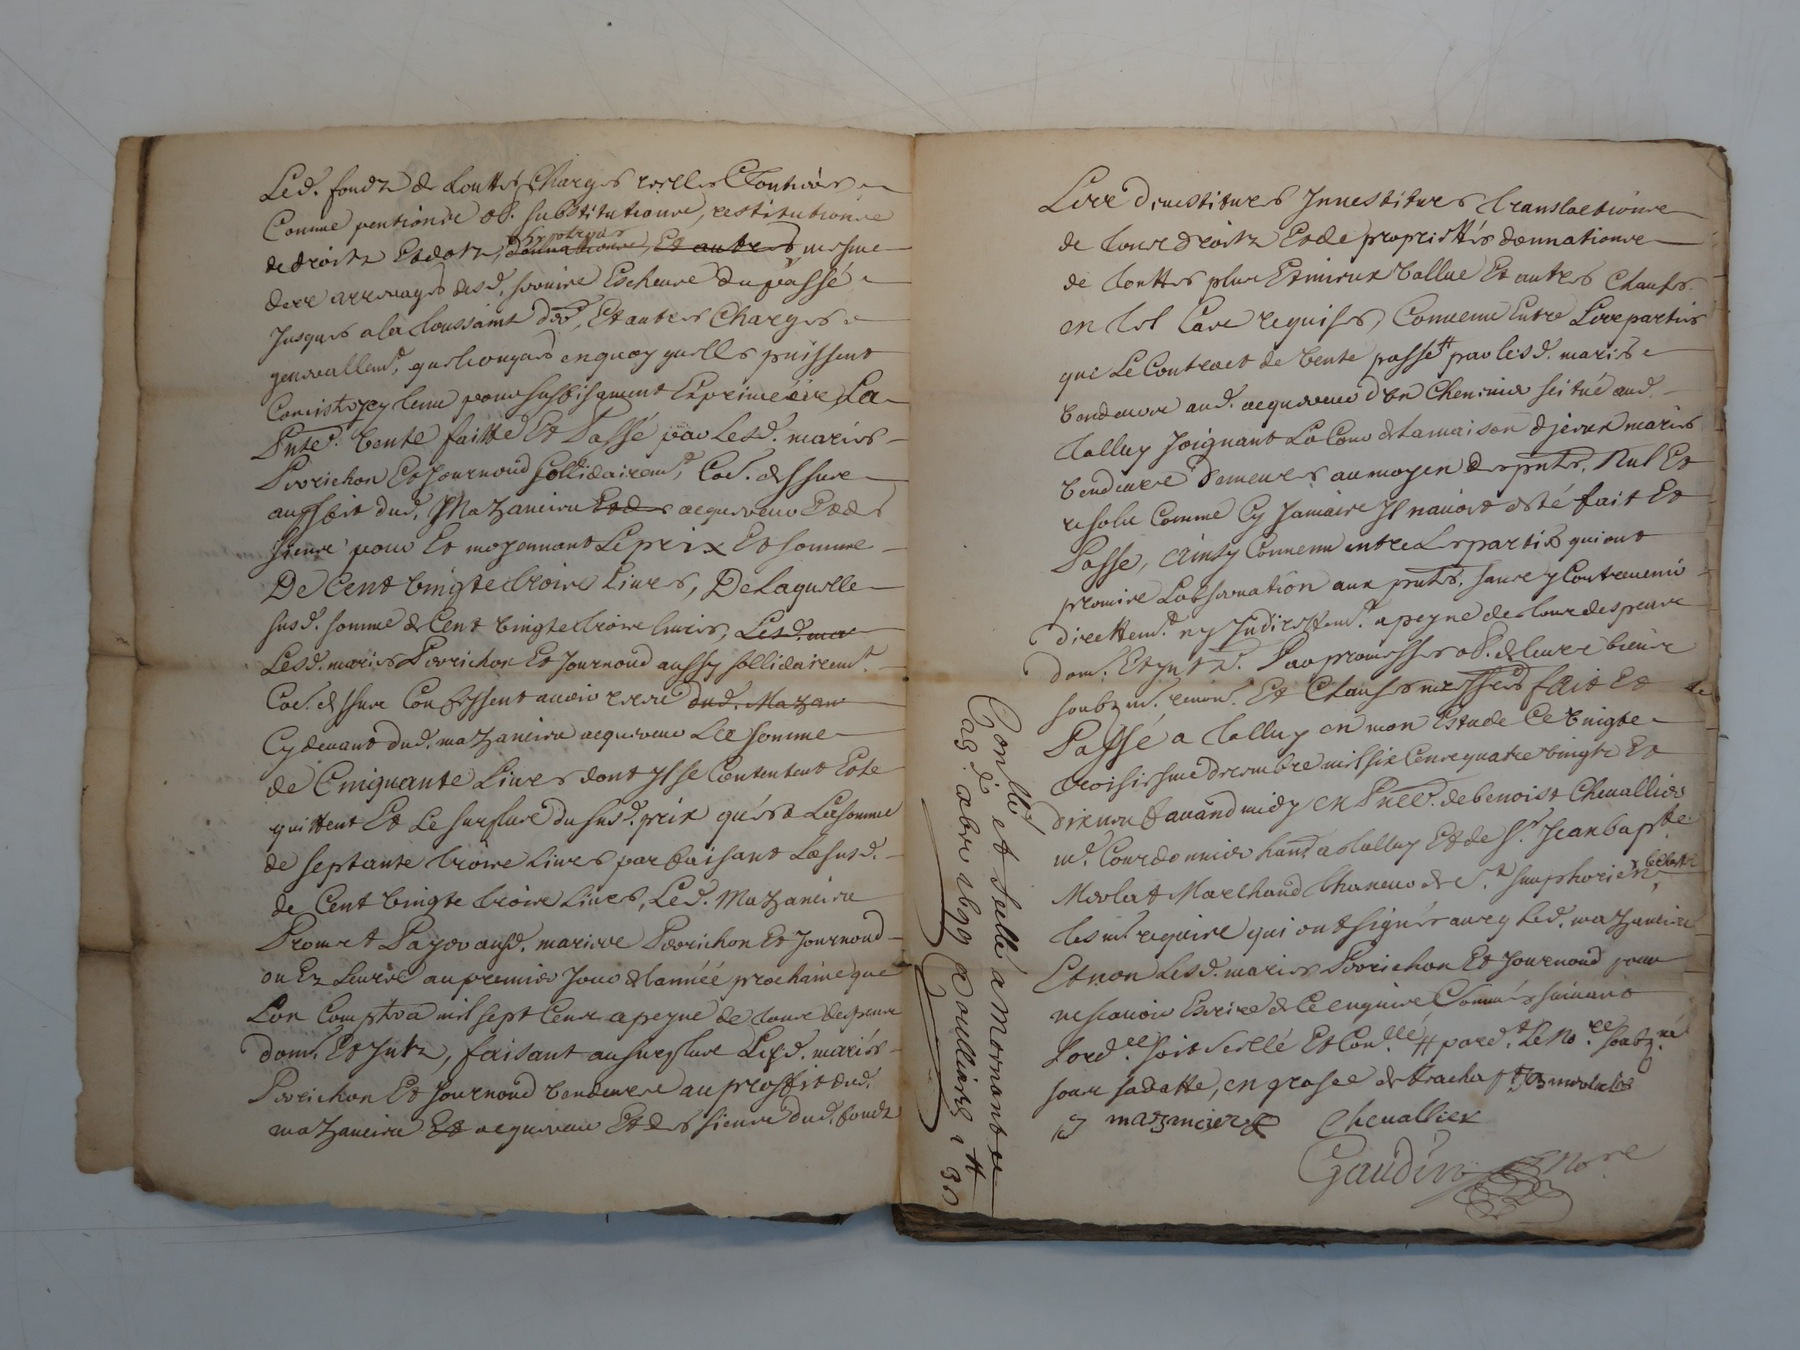 Led. fondz de touttes Charges reelles
Comme pentionde ob. substitutions, restitutions
de droitz Et dotz, hypoteques donnations, Et autres mesme
des arrerages desd. servis Escheus du passé
Jusques a la toussaint der. Et autres Charges
generallemt. quelconques en quoy quelles puissent
Concister, y tenu pour suffisament Exprimé La
pnte. vente faitte Et Passé par Lesd. mariés
Porrichon Et Journoud sollidairemt. Cod. dessus
au proffit dud. Mazancieu Et des acquereur Et des
siens pour Et moyennant Le prix Et somme
De Cent vingte trois Livres, De Laquelle
susd. somme de Cent vingte trois livres, Lesd. mar
Lesd. mariés Porrichon Et Journoud aussy sollidairemt.
Cod. dessus Confessent avoir receu dud. Mazan
Cy devant dud. mazancieu acquereur La somme
de Cinquante Livres dont ylse Contentent Et le
quittent Et Le surplus du susd. prix qu'est La somme
de septante trois Livres parfaisant La susd.
de Cent vingte trois Livres, Led. Mazancieu
Promet Payer ausd. mariés Porrichon Et Journoud
ou Ez Leurs au premier Jour de lannéé prochaine que
Lon Comptera mil sept Cens a peyne de tous despens
dom. Et Intz, faisant au surplus Lesd. mariés
Porrichon Et Journoud vendeurs au proffit dud.
mazancieu Et acquereur Et des siens dud. fondz
Les devestitures Jnvestitures translactions
de tous droitz Et de propriettés donnations
de touttes plus Et mieux vallue Et autres Clauses
en tel Cas requises, Convenu Entre Les parties
que Le Contract de vente passé par lesd. mariés
vendeurs aud. acquereur d'un Cheneviér scitué aud.
talluy Joignant La Cour de La maison d jceux mariés
vendeurs Demeures au moyen des pntes. Nul Et
resolu Comme Cy Jamais Jl navoit esté fait Et
Passe, Ainsy Convenu entre Les parties qui ont
promise Lobservation aux pntes. sans y Contrevenir
directtemt. ny Indirecttemt. a peyne de tous despens
dom. Et yntz. Par promesses ob. de leurs biens
soubzm. renon. Et Clauses necessres fait Et
Passé a talluy en mon Estude Ce vingte
troisiesme decembre mil six Cens quatre vingtz Et
dixneuf avand midy en Pnce. de benoist Chevallier
md. Courdonnier hant. a talluy Et de sr. Jean baptte
Merlat Marchand Chaneur de St. simphorien Le Chastel
tesm. requis qui ont signés avecq Led. mazancieu
Et non Lesd. mariés Porrichon Et Journoud pour
ne scavoir Escrire de Ce enquis Et sommés suivant
Lordce. soit scellé Et Conllé par d. Le nore. soubzné
sous sa datte, en grosse detracha
J mazancieux Chevallier
Gaudin nore
Conllé et scellé a Mornant ce